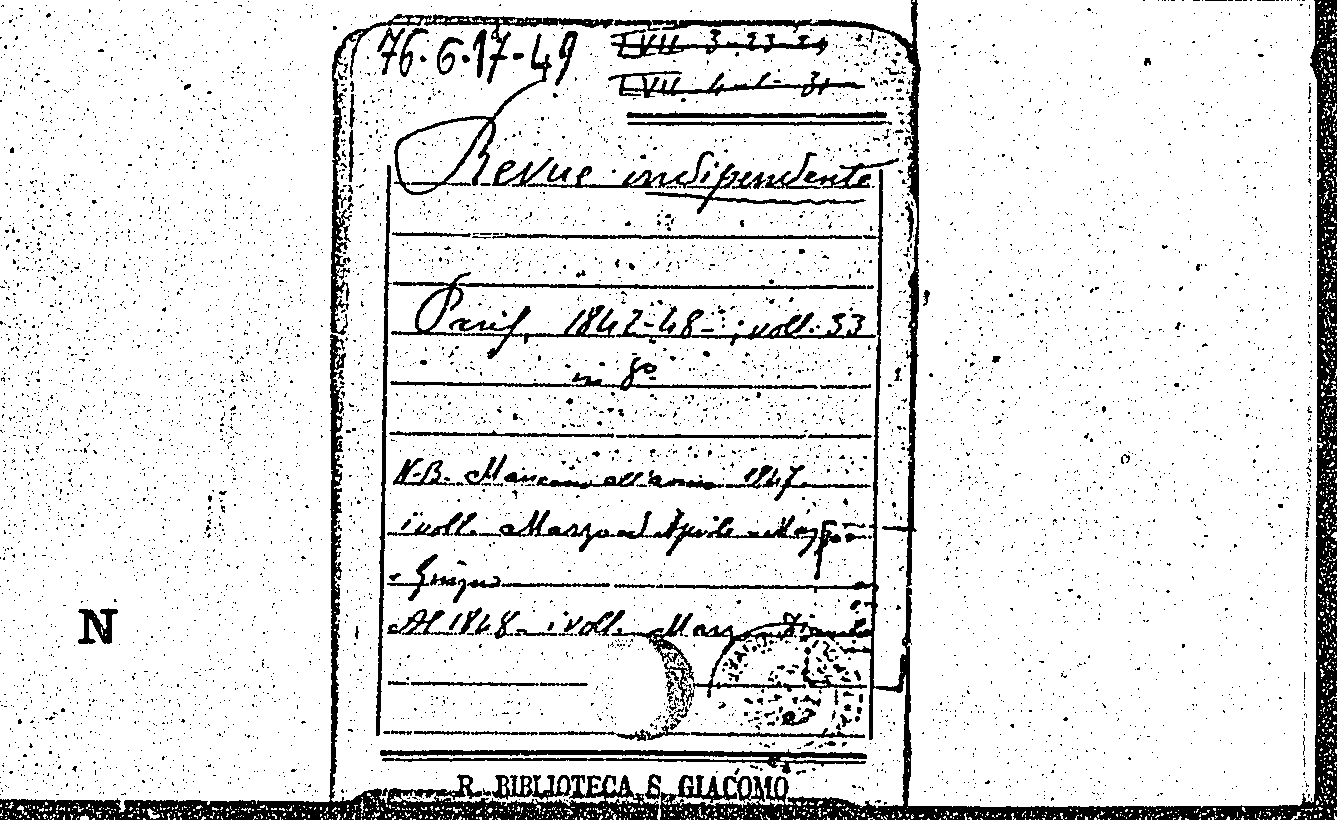 76.6.17-49
LVII 3-23-24
LVII 4
Revue indipendente
Parif, 1842-48-; voll. 33
in 8º
N.B. Mancano all'anno 1847
i voll. Marzo ed Aprile e Maggio
e Giugno
Al 1848- i voll. Marzo
N
R. BIBLIOTECA S. GIACOMO